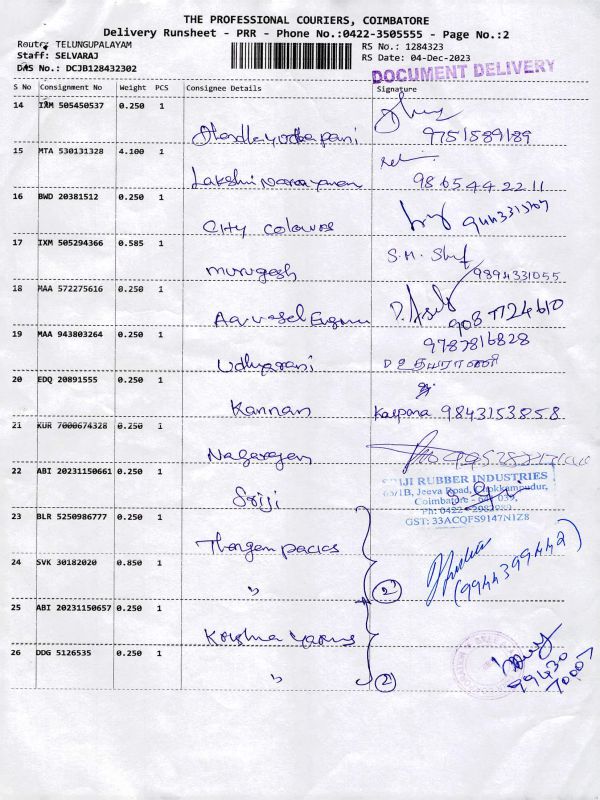 THE PROFESSIONAL COURIERS, COIMBATORE
Delivery Runsheet - PRR - Phone No.:0422-3505555 - Page No.:2
Route: TELUNGUPALAYAM RS No.: 1284323
Staff: SELVARAJ RS Date: 04-Dec-2023
DAS No.: DCJB128432302 DOCUMENT DELIVERY
S No Consignment No Weight PCS Consignee Details Signature
14 IXM 505450537 0.250 1
9751589189
15 MTA 530131328 4.100 1
Lakshmi Narayanan 9865442211
16 BWD 20381512 0.250 1
City Colours
17 IXM 505294366 0.585 1
Murugesh S.M. 9894331055
18 MAA 572275616 0.250 1
9087724610
19 MAA 943803264 0.250 1
9787816828
Udhyarani D உதயராணி
20 EDQ 20891555 0.250 1
Kannan Kalpana 9843153858
21 KUR 7000674328 0.250 1
Nagarajan
22 ABI 20231150661 0.250 1
Sriji
SRIJI RUBBER INDUSTRIES
65/1B, Jeeva Road,
Coimbatore - 641 039.
GST: 33ACQFS9147N1Z8
23 BLR 5250986777 0.250 1
24 SVK 30182020 0.850 1
" 2 (9944399442)
25 ABI 20231150657 0.250 1
Krishna Yarns
26 DDG 5126535 0.250 1
" 2 99430
70007